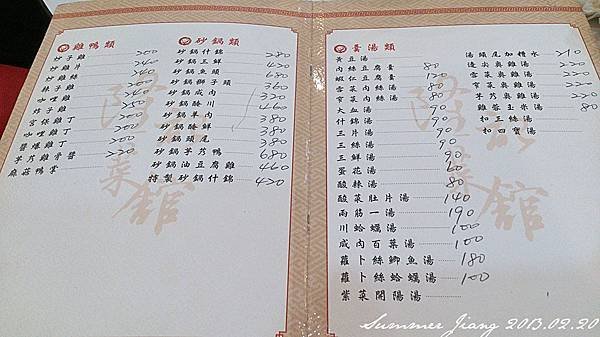 雞鴨類
炒子雞 200
炒雞片 240
炒雞絲 240
辣子雞 200
咖哩雞 240
炸子雞 250
宮保雞丁 200
咖哩雞丁 200
醬爆雞丁 200
茅芍雞骨醬 220
麻菇鴨掌
砂鍋類
砂鍋什錦 280
砂鍋三鮮 420
砂鍋魚頭 680
砂鍋獅子頭 360
砂鍋咸肉 320
砂鍋醃川 460
砂鍋羊肉 380
砂鍋醃鮮 380
砂鍋頭尾 380
砂鍋芋芍鴨 680
砂鍋油豆腐雞 460
特製砂鍋什錦 420
羹湯類
黃豆湯
肉絲豆腐羹 80
蝦仁豆腐羹 120
雪菜肉絲湯 80
榨菜肉絲湯 80
大血湯 90
什錦湯 90
三片湯 90
三絲湯 90
三鮮湯 90
蛋花湯 60
酸辣湯 80
酸菜肚片湯 140
兩筋一湯 190
川蛤蠣湯 100
咸肉百葉湯 100
蘿卜絲鯽魚湯 180
蘿卜絲蛤蠣湯 100
紫菜開陽湯
湯頭尾加糟水 310
邊尖與雞湯 220
雪菜與雞湯 220
榨菜與雞湯 220
茅芍與雞湯 220
雞蓉玉米湯 80
扣三絲湯
扣四寶湯
隆記菜館
Summer Jiang 2013.02.20